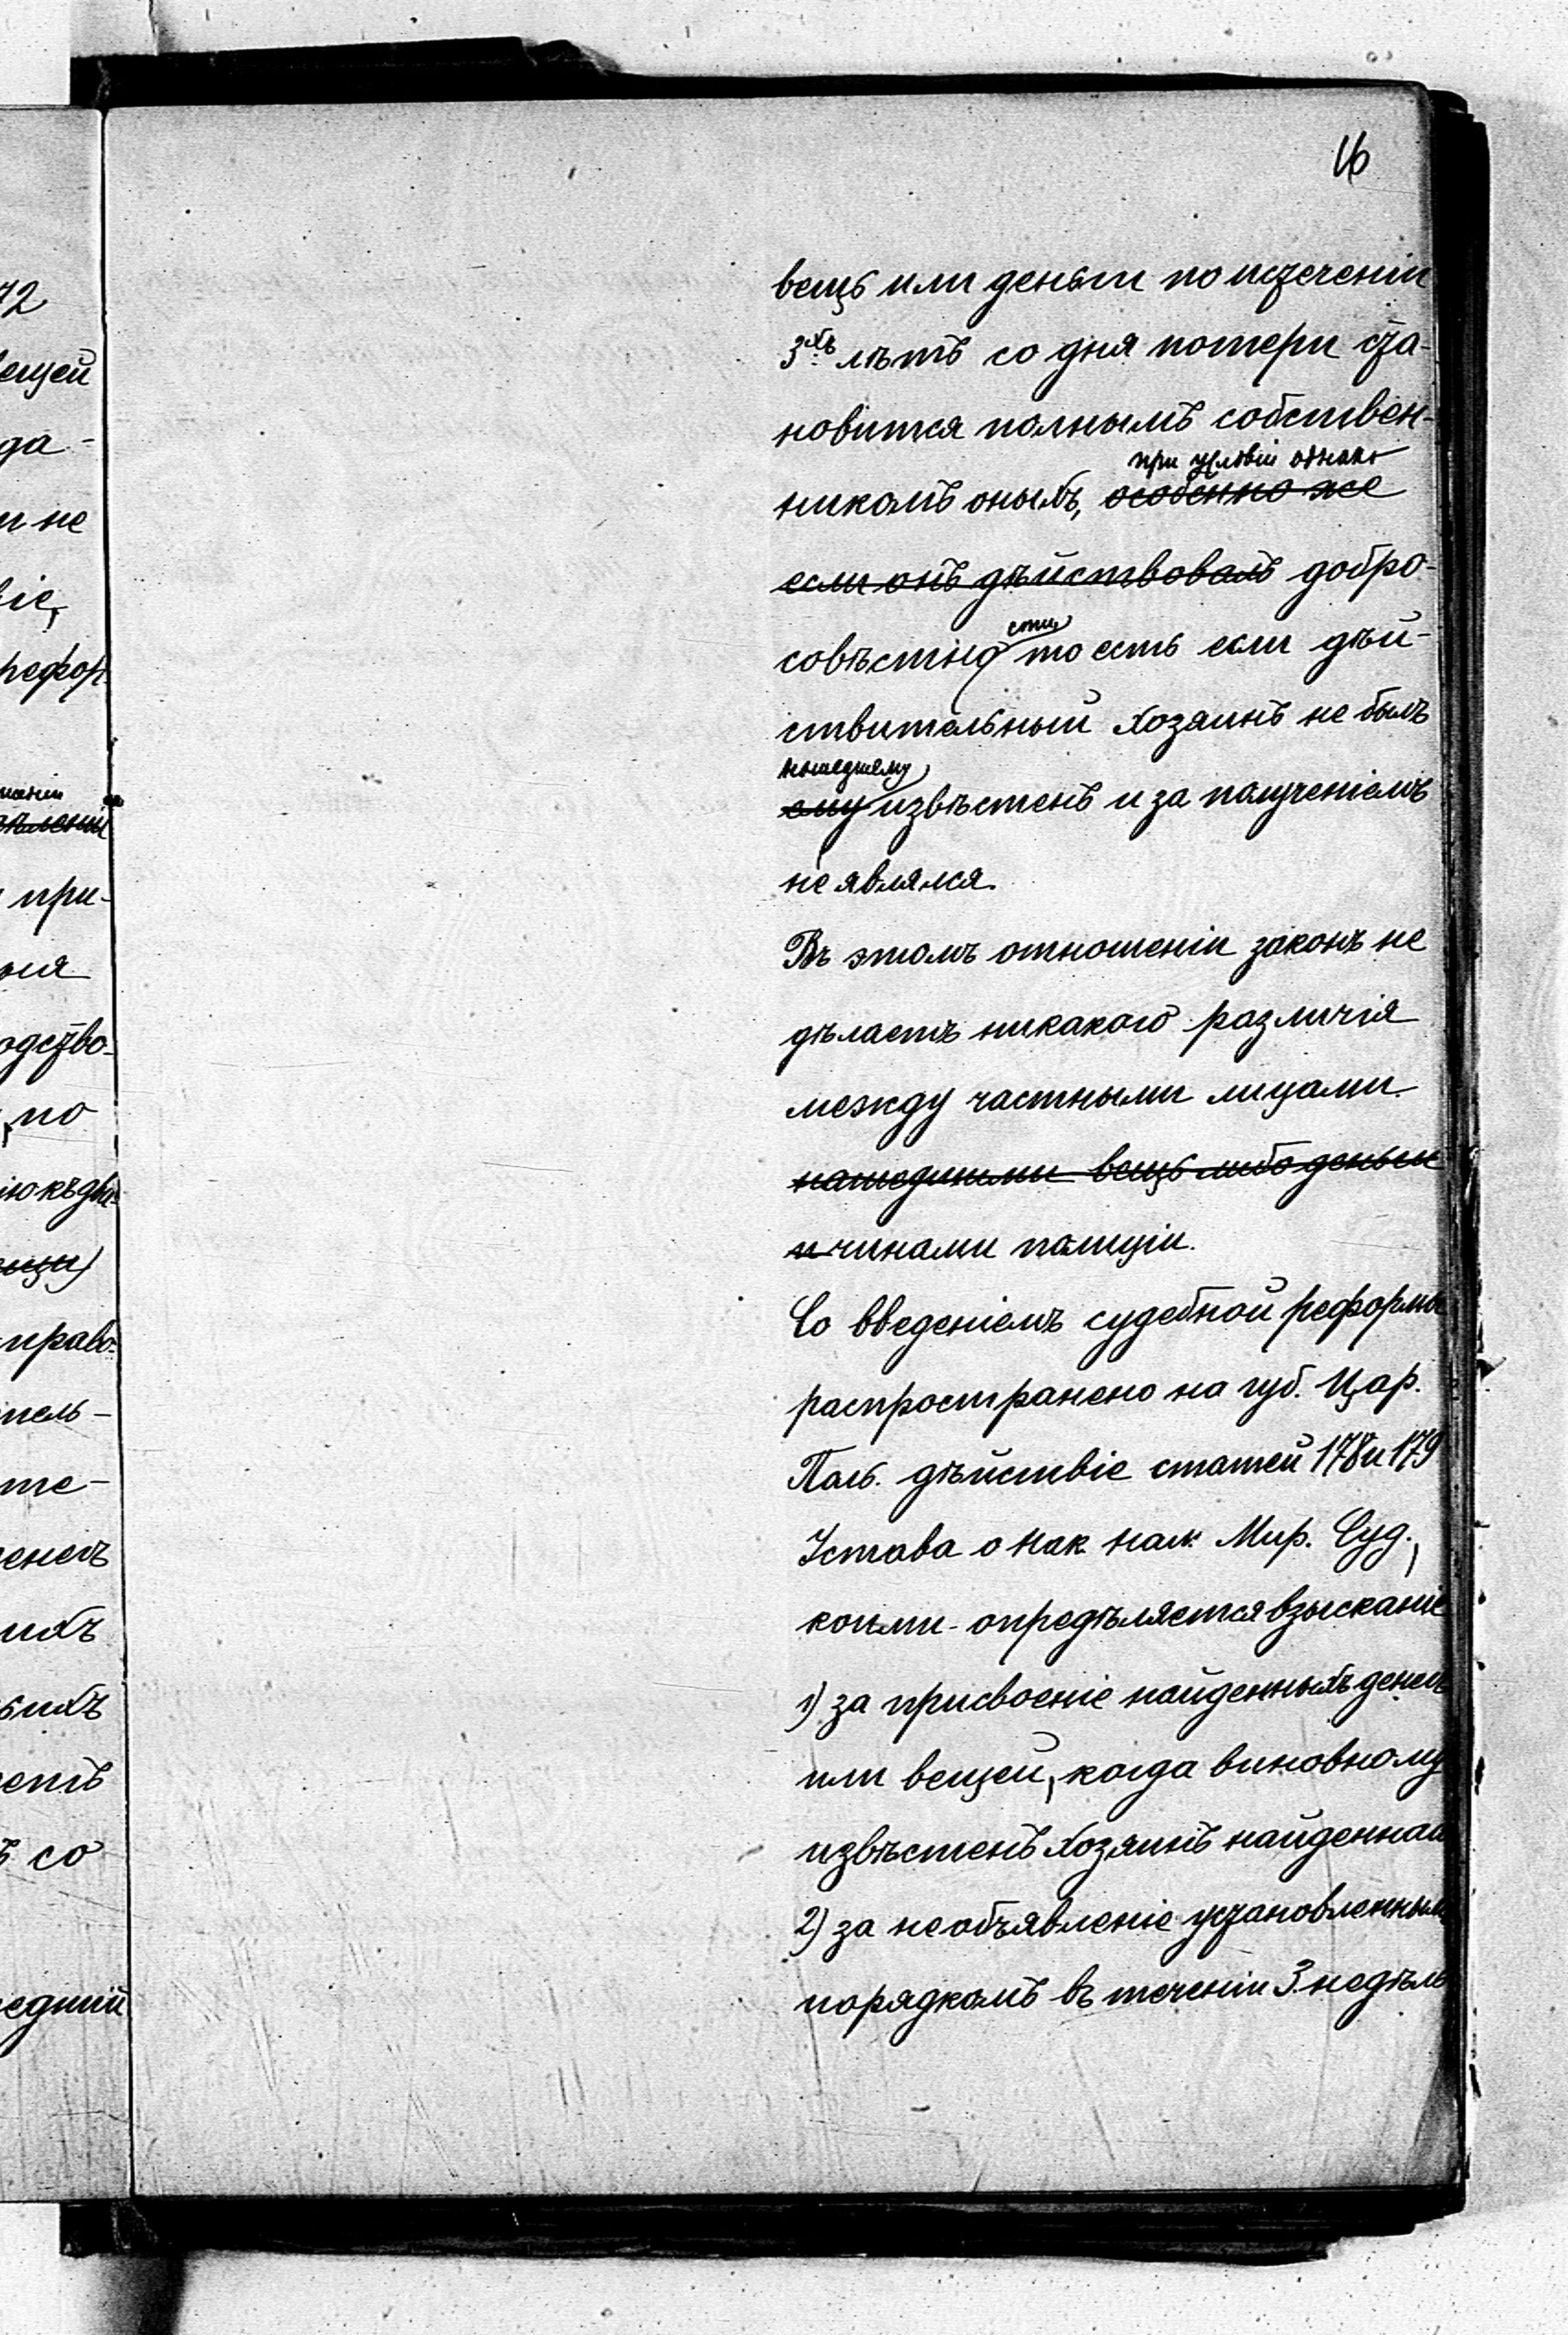 16
вещь или деньги по истеченіи
3хъ лѣтъ со дня потери ста-
новится полнымъ собствен-
при условіи однако
никомъ оныхъ, особенно же
если онъ дѣйствовалъ добро-
сти,
совѣстно то есть если дѣй-
ствительный хозяинъ не былъ
нашедшему
ему извѣстенъ и за полученіемъ
не являлся.
Въ этомъ отношеніи законъ не
дѣлаетъ никакого различія
между частными лицами
нашедшими вещь либо деньги
и чинами полиціи.
Со введеніемъ судебной реформы
распространено на губ. Цар.
Поль. дѣйствіе статей 178 и 179
Устава о нак. нал. Мир. Суд.,
коими опредѣляется взысканіе
1) за присвоеніе найденныхъ денегъ
или вещей, когда виновному
извѣстенъ хозяинъ найденнаго
2) за необъявленіе установленнымъ
порядкомъ въ теченіи 3 недѣль
72
вещей
да-
и не
віе,
рефор-
при-
одство-
, по
право-
тель-
те-
денегъ
ихъ
ьихъ
ъ со
едшій